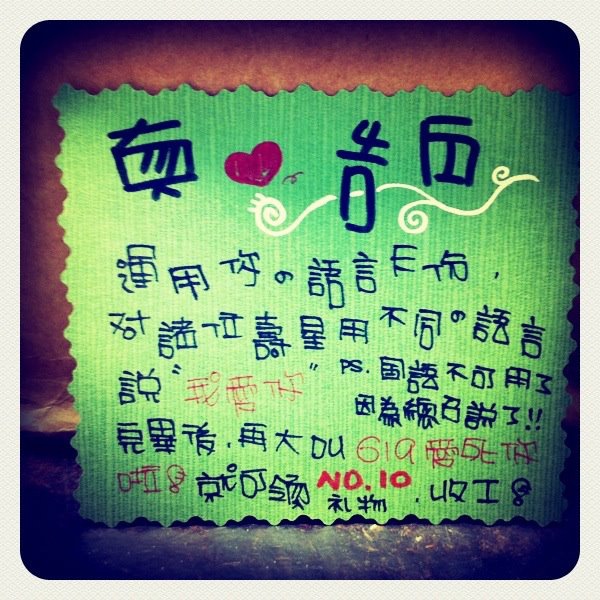 真♥告白
運用你の語言天份,
對諸位壽星用不同の語言
說"我愛你" PS. 國語不可用了
因為總召說了!!
完畢後,再大叫619愛死你
啦!就可領NO.10礼物,收工!